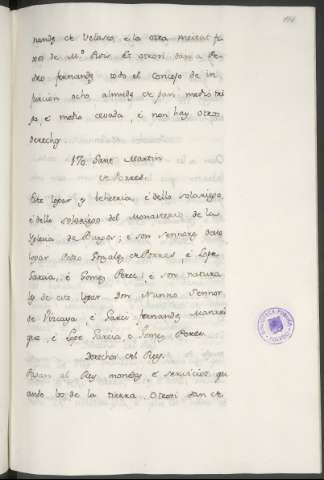 nandz de Velasco, e la otra meitat fi
jos de Mº Ruis. Et otrosi dan a Pe
dro fernandz todo el Concejo de in
furcion ocho almudes de pan medio tri
go e medio cevada, e non hay otros
derechos
170 Sant Martin
de Porres.
Este logar es behetria, e dello solariego
e dello solariego del Monasterio de la
Iglesia de Burgos; e son Sennores deste
logar Pedro Gonzalez de Porres e Lope
Garcia, e Gomez Perez, e son natura
les de este logar Don Nunno Sennor
de Vizcaya, e Garci fernandez Manrri
que, e Lope Garcia e Gomez Perez.
Derechos del Rey.
Pagan al Rey monedas e servicios qu
ando los de la tierra. Otrosi dan de